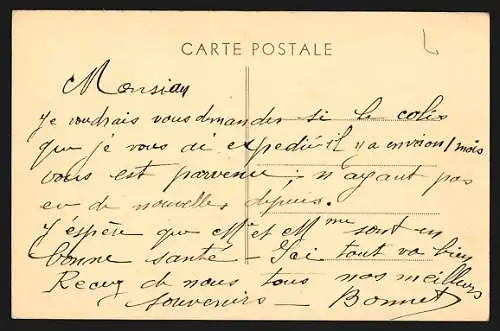 CARTE POSTALE
Monsieur
Je voudrais vous demander si le colis
que je vous ai expedié il y a environ 1 mois
vous est parvenu : n'ayant pas
eu de nouvelles depuis.
J'espère que Mr et Mme sont en
bonne santé - Ici tout va bien
Recevez de nous tous nos meilleurs
souvenirs - Bonnet